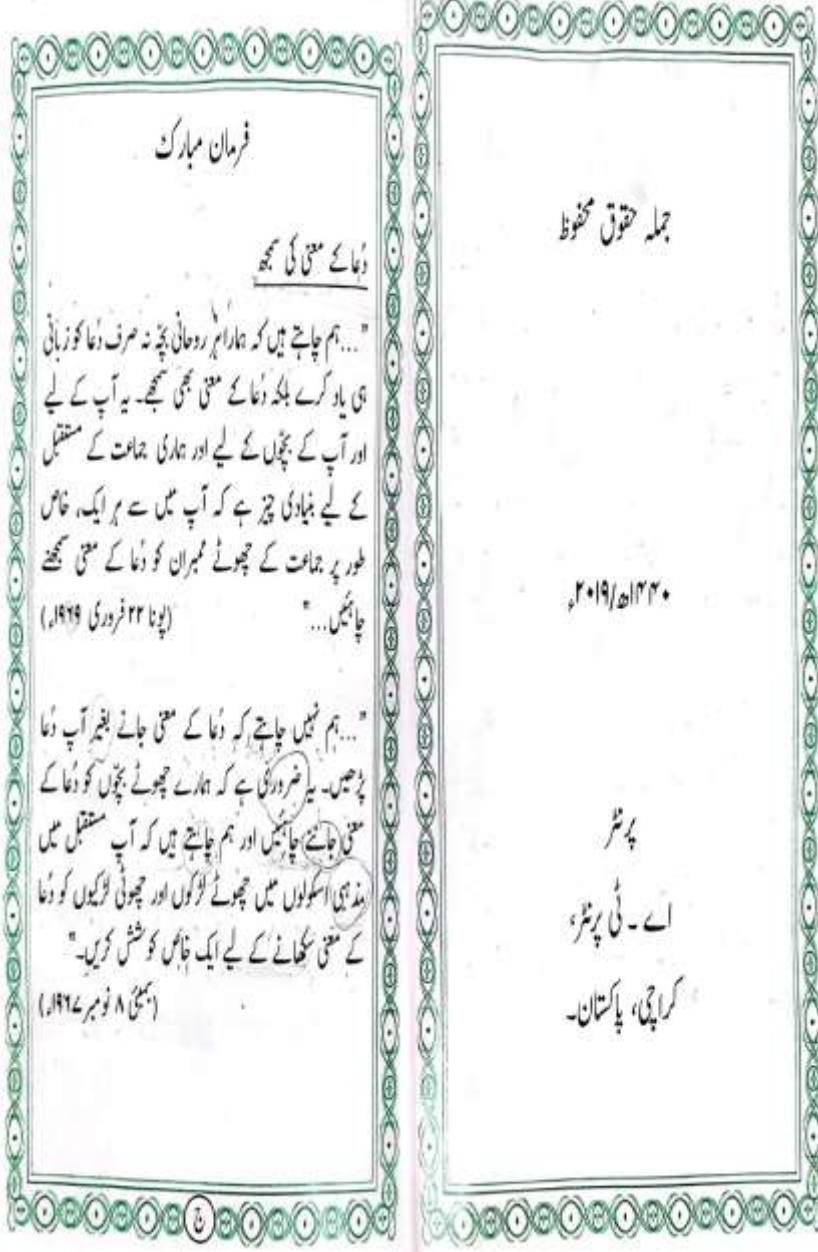 جملہ حقوق محفوظ
۱۴۴۰ھ/۲۰۱۹ء
پرنٹر
اے ۔ ٹی پرنٹر،
کراچی، پاکستان۔
فرمان مبارک
دُعا کے معنی کی سمجھ
"...ہم چاہتے ہیں کہ ہمارا ہر روحانی بچّہ نہ صرف دُعا کو زبانی
ہی یاد کرے بلکہ دُعا کے معنی بھی سمجھے۔ یہ آپ کے لیے
اور آپ کے بچّوں کے لیے اور ہماری جماعت کے مستقبل
کے لیے بنیادی چیز ہے کہ آپ میں سے ہر ایک، خاص
طور پر جماعت کے چھوٹے ممبران کو دُعا کے معنی سمجھنے
چاہئیں..." (پونا ۲۲ فروری ۱۹۶۹ء)
"...ہم نہیں چاہتے کہ دُعا کے معنی جانے بغیر آپ دُعا
پڑھیں۔ یہ ضروری ہے کہ ہمارے چھوٹے بچّوں کو دُعا کے
معنی جاننے چاہئیں اور ہم چاہتے ہیں کہ آپ مستقبل میں
مذہبی اسکولوں میں چھوٹے لڑکوں اور چھوٹی لڑکیوں کو دُعا
کے معنی سکھانے کے لیے ایک خاص کوشش کریں۔"
(بمبئی ۸ نومبر ۱۹۶۷ء)
ج